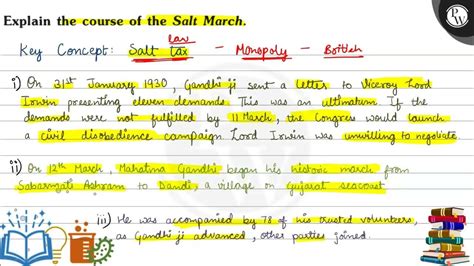 Explain the course of the Salt March.
PW
law
Key Concept: Salt tax - Monopoly - British
i) On 31st January 1930, Gandhi ji sent a letter to Viceroy Lord
Irwin presenting eleven demands. This was an ultimatum. If the
demands were not fulfilled by 11 March, the Congress would launch
a civil disobedience campaign. Lord Irwin was unwilling to negotiate.
ii) On 12th March, Mahatma Gandhi began his historic march from
Sabarmati Ashram to Dandi, a village on Gujarat seacoast
iii) He was accompanied by 78 of his trusted volunteers,
as Gandhi ji advanced, other parties joined.